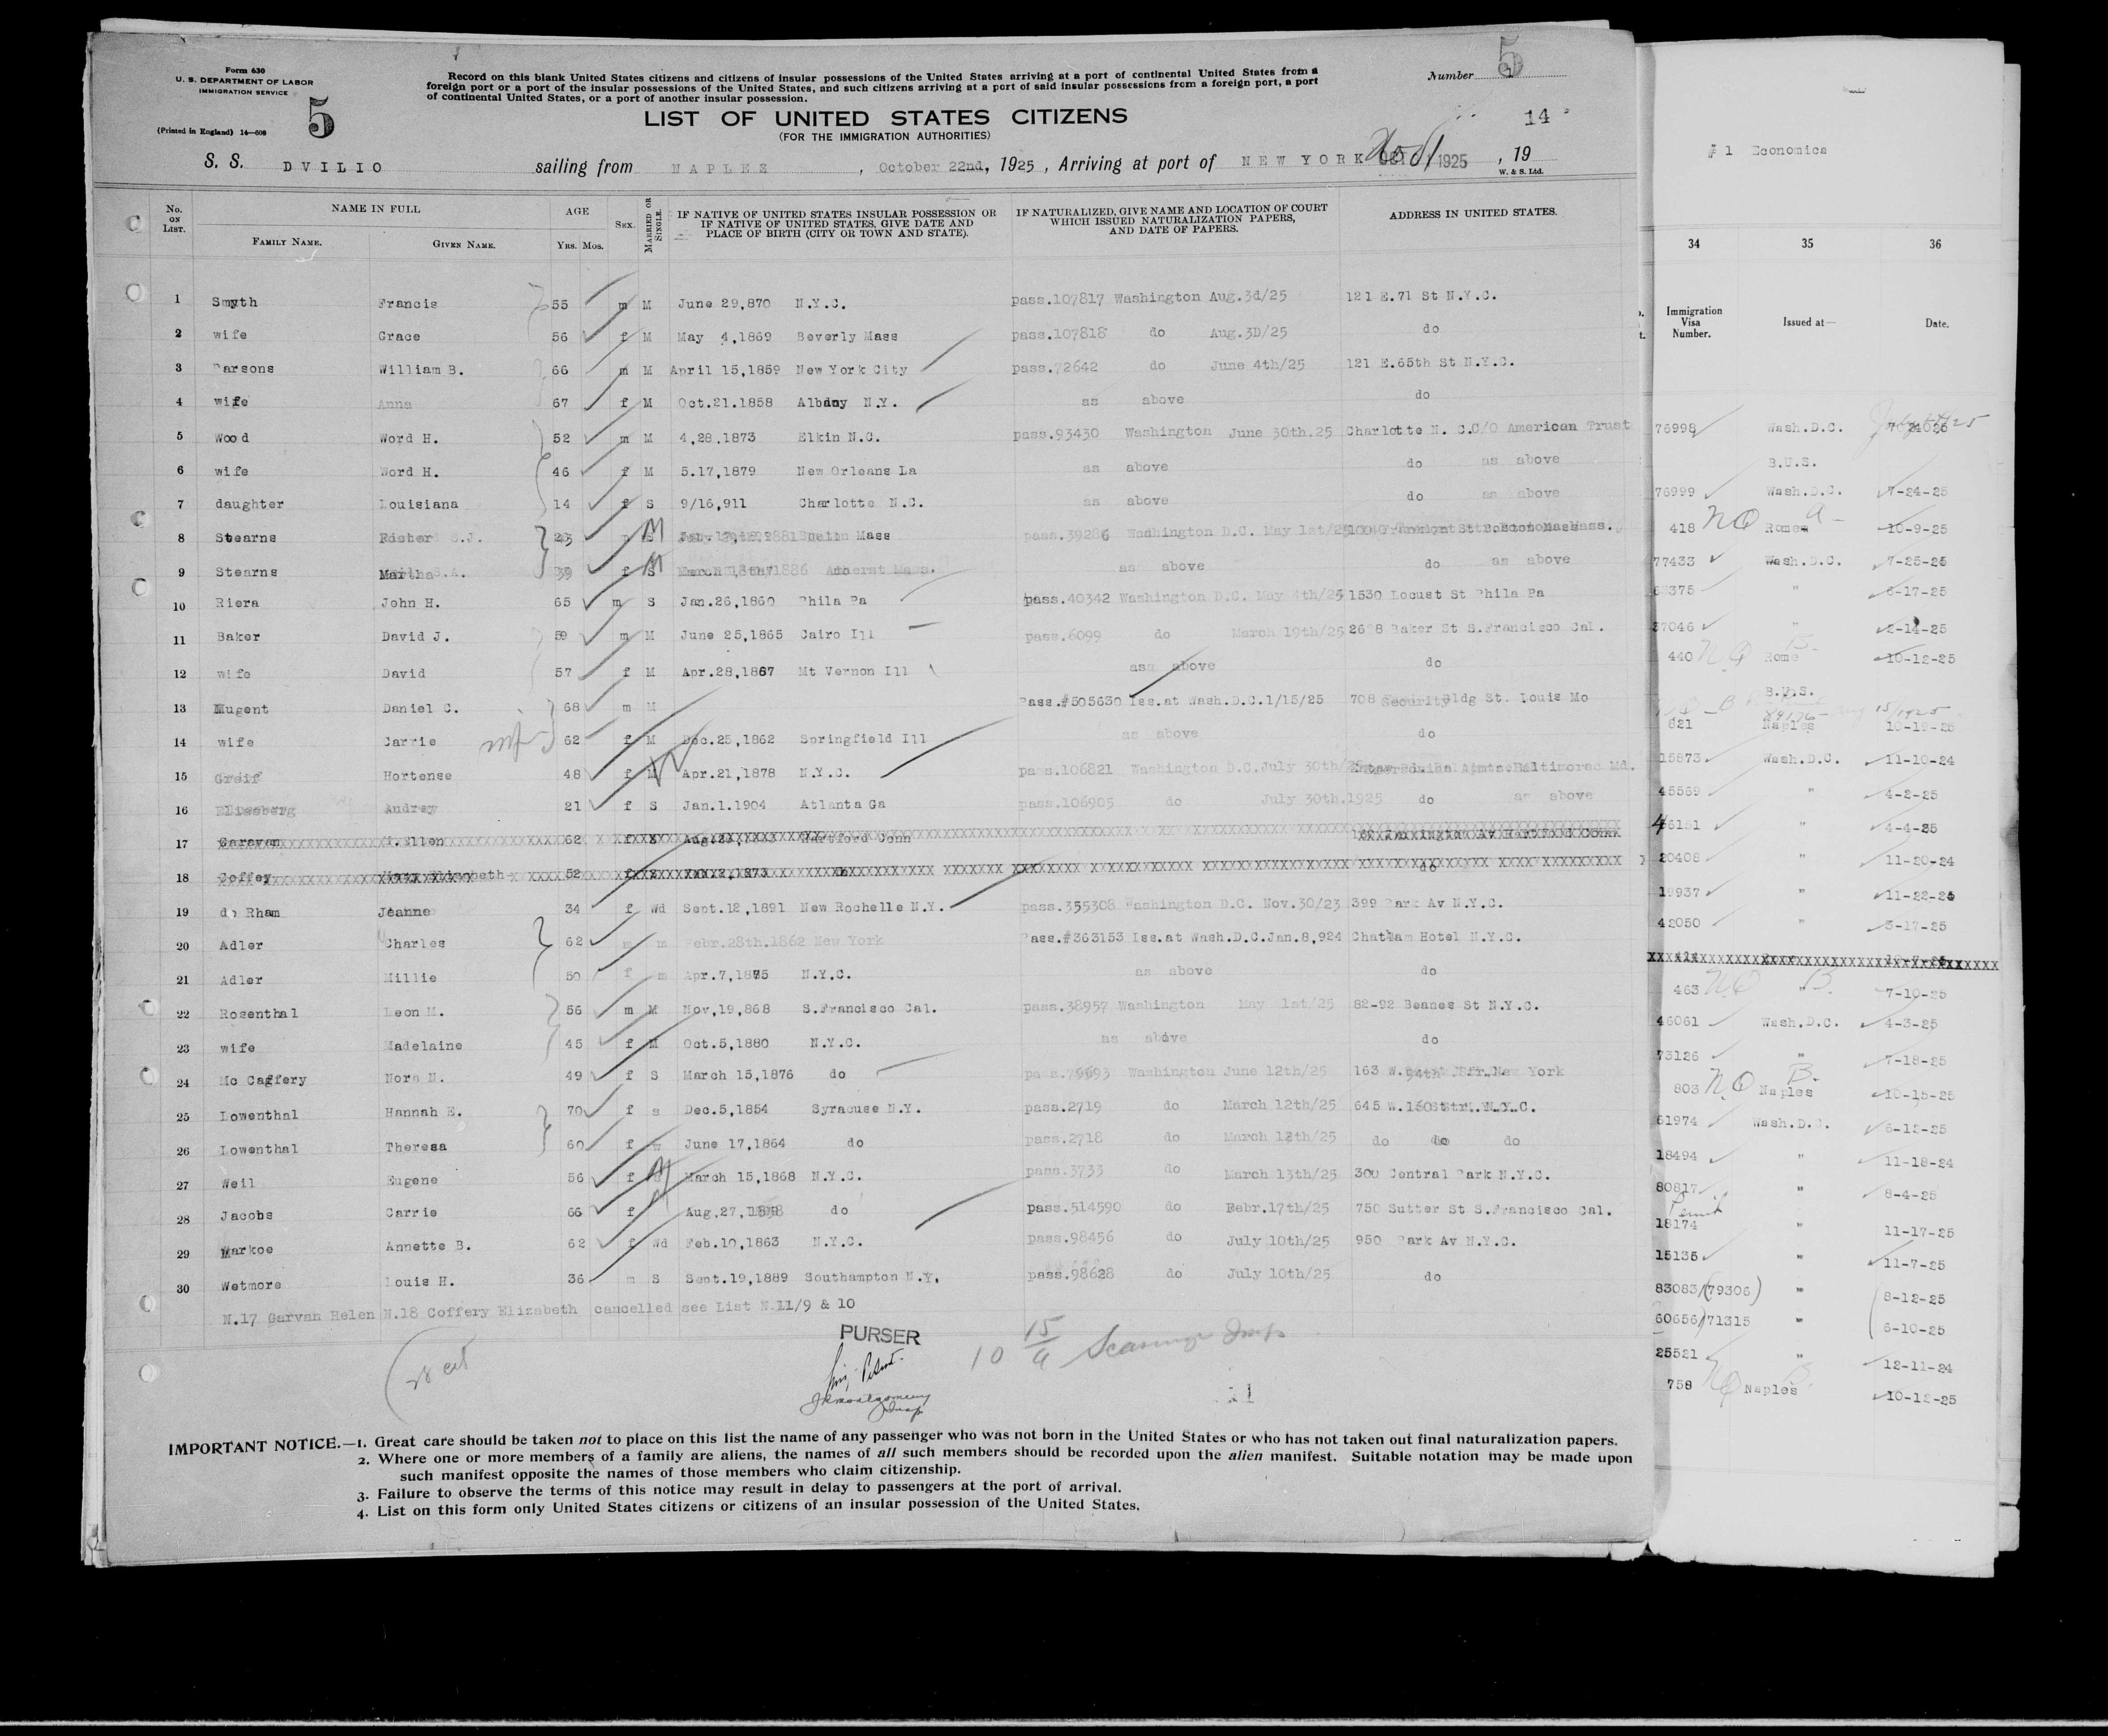 Form 630
U. S. DEPARTMENT OF LABOR
IMMIGRATION SERVICE
(Printed in England) 14—608
5
Record on this blank United States citizens and citizens of insular possessions of the United States arriving at a port of continental United States from a
foreign port or a port of the insular possessions of the United States, and such citizens arriving at a port of said insular possessions from a foreign port, a port
of continental United States, or a port of another insular possession.
Number 5
LIST OF UNITED STATES CITIZENS
(FOR THE IMMIGRATION AUTHORITIES)
14
S. S. DVILIO sailing from NAPLES, October 22nd, 1925, Arriving at port of NEW YORK 1925, 19
W. & S. Ltd.
No. ON LIST. NAME IN FULL AGE SEX. MARRIED OR SINGLE. IF NATIVE OF UNITED STATES INSULAR POSSESSION OR IF NATIVE OF UNITED STATES, GIVE DATE AND PLACE OF BIRTH (CITY OR TOWN AND STATE). IF NATURALIZED, GIVE NAME AND LOCATION OF COURT WHICH ISSUED NATURALIZATION PAPERS, AND DATE OF PAPERS. ADDRESS IN UNITED STATES.
FAMILY NAME. GIVEN NAME. YRS. MOS.
1 Smyth Francis 55 m M June 29,870 N.Y.C. pass.107817 Washington Aug.3d/25 121 E.71 St N.Y.C.
2 wife Grace 56 f M May 4,1869 Beverly Mass pass.107818 do Aug.3D/25 do
3 Parsons William B. 66 m M April 15,1859 New York City pass.72642 do June 4th/25 121 E.65th St N.Y.C.
4 wife Anna 67 f M Oct.21.1858 Albany N.Y. as above do
5 Wood Word H. 52 m M 4,28,1873 Elkin N.C. pass.93430 Washington June 30th.25 Charlotte N. C.C/O American Trust
6 wife Word H. 46 f M 5.17,1879 New Orleans La as above do as above
7 daughter Louisiana 14 f S 9/16,911 Charlotte N.C. as above do as above
8 Stearns S.J. m M Mass pass.39286 Washington D.C. May 1st/25
9 Stearns Martha 39 f M 1886 Amherst Mass. as above do as above
10 Riera John H. 65 m S Jan.26,1860 Phila Pa pass.40342 Washington D.C. May 4th/25 1530 Locust St Phila Pa
11 Baker David J. 59 m M June 25,1865 Cairo Ill pass.6099 do March 19th/25 2698 Baker St S.Francisco Cal.
12 wife David 57 f M Apr.28,1867 Mt Vernon Ill as above do
13 Nugent Daniel C. 68 m M Pass.#505630 Iss.at Wash.D.C.1/15/25 708 Security Bldg St. Louis Mo
14 wife Carrie 62 f M Dec.25,1862 Springfield Ill as above do
15 Greif Hortense 48 f Apr.21,1878 N.Y.C. pass.106821 Washington D.C.July 30th/25 Baltimore Md.
16 Audrey 21 f S Jan.1.1904 Atlanta Ga pass.106905 do July 30th.1925 do as above
17 Garavan Ellen 62 f Hartford Conn
18 Coffey Elizabeth 52 do
19 de Rham Jeanne 34 f Wd Sept.12,1891 New Rochelle N.Y. pass.355308 Washington D.C. Nov.30/23 399 Park Av N.Y.C.
20 Adler Charles 62 m m Febr.28th.1862 New York Pass.#363153 Iss.at Wash.D.C.Jan.8,924 Chatham Hotel N.Y.C.
21 Adler Millie 50 f m Apr.7,1875 N.Y.C. as above do
22 Rosenthal Leon M. 56 m M Nov,19,868 S.Francisco Cal. pass.38957 Washington May 1st/25 82-92 Beanes St N.Y.C.
23 wife Madelaine 45 f M Oct.5,1880 N.Y.C. as above do
24 Mc Caffery Nora N. 49 f S March 15,1876 do Washington June 12th/25 163 W. New York
25 Lowenthal Hannah E. 70 f s Dec.5,1854 Syracuse N.Y. pass.2719 do March 12th/25 645 W. N.Y.C.
26 Lowenthal Theresa 60 f June 17,1864 do pass.2718 do March 13th/25 do do do
27 Weil Eugene 56 f March 15,1868 N.Y.C. pass.3733 do March 13th/25 300 Central Park N.Y.C.
28 Jacobs Carrie 66 f Aug,27, do pass.514590 do Febr.17th/25 750 Sutter St S.Francisco Cal.
29 Markoe Annette B. 62 f Wd Feb.10,1863 N.Y.C. pass.98456 do July 10th/25 950 Park Av N.Y.C.
30 Wetmore Louis H. 36 m S Sept.19,1889 Southampton N.Y. pass.98628 do July 10th/25 do
N.17 Garvan Helen N.18 Coffery Elizabeth cancelled see List N.11/9 & 10
PURSER
IMPORTANT NOTICE.—1. Great care should be taken not to place on this list the name of any passenger who was not born in the United States or who has not taken out final naturalization papers.
2. Where one or more members of a family are aliens, the names of all such members should be recorded upon the alien manifest. Suitable notation may be made upon
such manifest opposite the names of those members who claim citizenship.
3. Failure to observe the terms of this notice may result in delay to passengers at the port of arrival.
4. List on this form only United States citizens or citizens of an insular possession of the United States.
# 1 Economica
34 35 36
Immigration Visa Number. Issued at— Date.
76998 Wash.D.C.
B.U.S.
76999 Wash.D.C. 7-24-25
418 NQ Rome 10-9-25
77433 Wash.D.C. 7-25-25
" 6-17-25
37046 " 2-14-25
440 NQ Rome 10-12-25
B.U.S.
621 Naples 10-19-25
15873 Wash.D.C. 11-10-24
45569 " 4-2-25
46131 " 4-4-25
20408 " 11-20-24
19937 " 11-22-24
42050 " 3-17-25
463 NQ " B. 7-10-25
46061 Wash.D.C. 4-3-25
73126 " 7-18-25
803 NQ Naples B. 10-15-25
61974 Wash.D.C. 6-12-25
18494 " 11-18-24
80817 " 8-4-25
Permit
18174 " 11-17-25
15135 " 11-7-25
83083 (79306) " 8-12-25
60656 71315 " 6-10-25
25521 " 12-11-24
758 NQ Naples B. 10-12-25